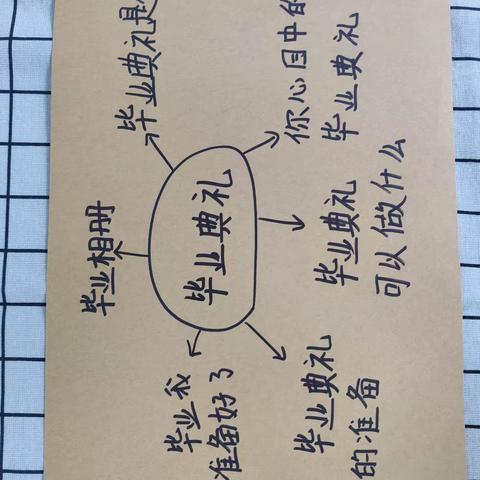 毕业典礼
毕业相册
毕业典礼是
你心目中的
毕业典礼
毕业典礼
可以做什么
毕业典礼
的准备
毕业我
准备好了